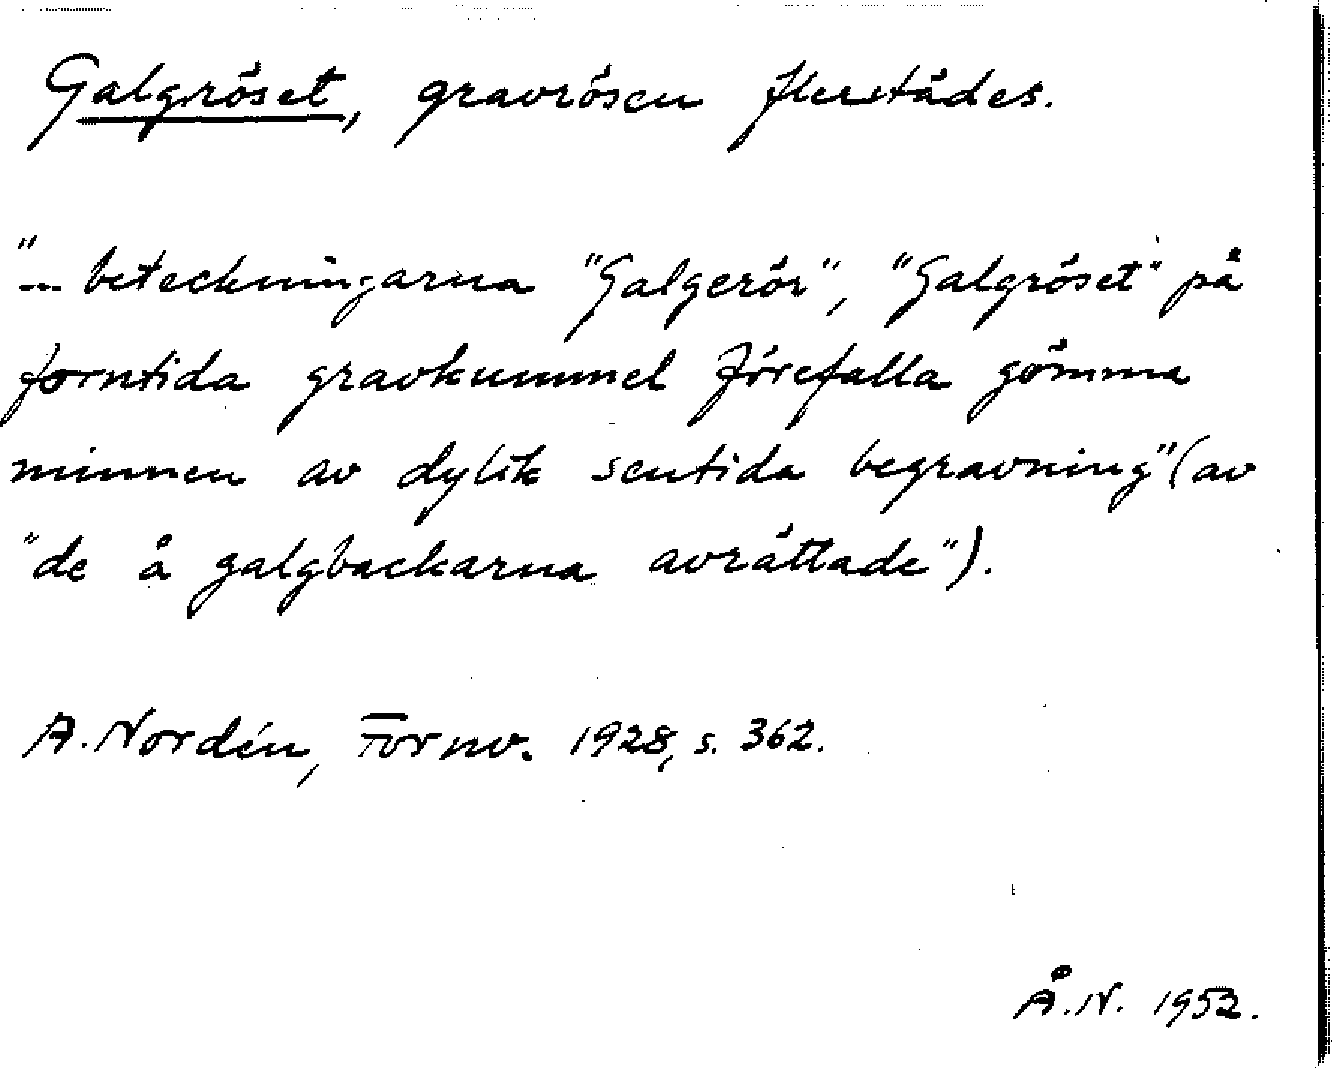 Galgröset, gravrösen flerstädes.
"... beteckningarna "Galgerör", "Galgröset" på
forntida gravkummel förefalla gömma
minnen av dylik sentida begravning" (av
"de å galgbackarna avrättade").
A. Nordén, Fornv. 1928, s. 362.
Å.N. 1952.